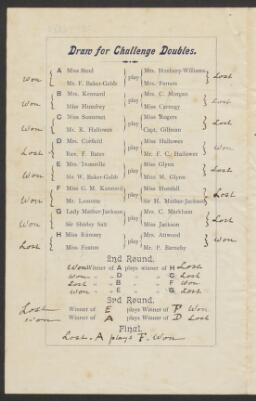 Draw for Challenge Doubles.
A Miss Mrs. Hanbury-Williams
Won } play { Lost
Mr. F. Baker-Gabb Mrs.
B Mrs. Kennard Mrs. C. Morgan
Won } play { Lost
Miss Humfrey Miss Carnegy
C Miss Somerset Miss Rogers
Won } play { Lost
Mr. R. Hallowes Capt. Gillman
D Mrs. Corfield Miss Hallowes
Lost } play { Won
Rev. F. Bates Mr. F. C. Hallowes
E Mrs. Miss Glynn
Won } play { Lost
Mr. W. Baker-Gabb Miss M. Glynn
F Miss G. M. Kennard Miss
Won } play { Lost
Mr. Sir H. Mather-Jackson
G Lady Mather-Jackson Mrs. C. Markham
Won } play { Lost
Sir Shirley Salt Miss Jackson
H Miss Mrs. Attwood
Lost } play { Won
Miss Feston Mr. P. Barneby
2nd Round.
Won Winner of A plays winner of H Lost
Won " " D " " C Lost
Lost " " B " " F Won
Won " " E " " G Lost
3rd Round.
Lost Winner of E plays Winner of F Won
Won Winner of A plays Winner of D Lost
Final.
Lost. A plays F. Won